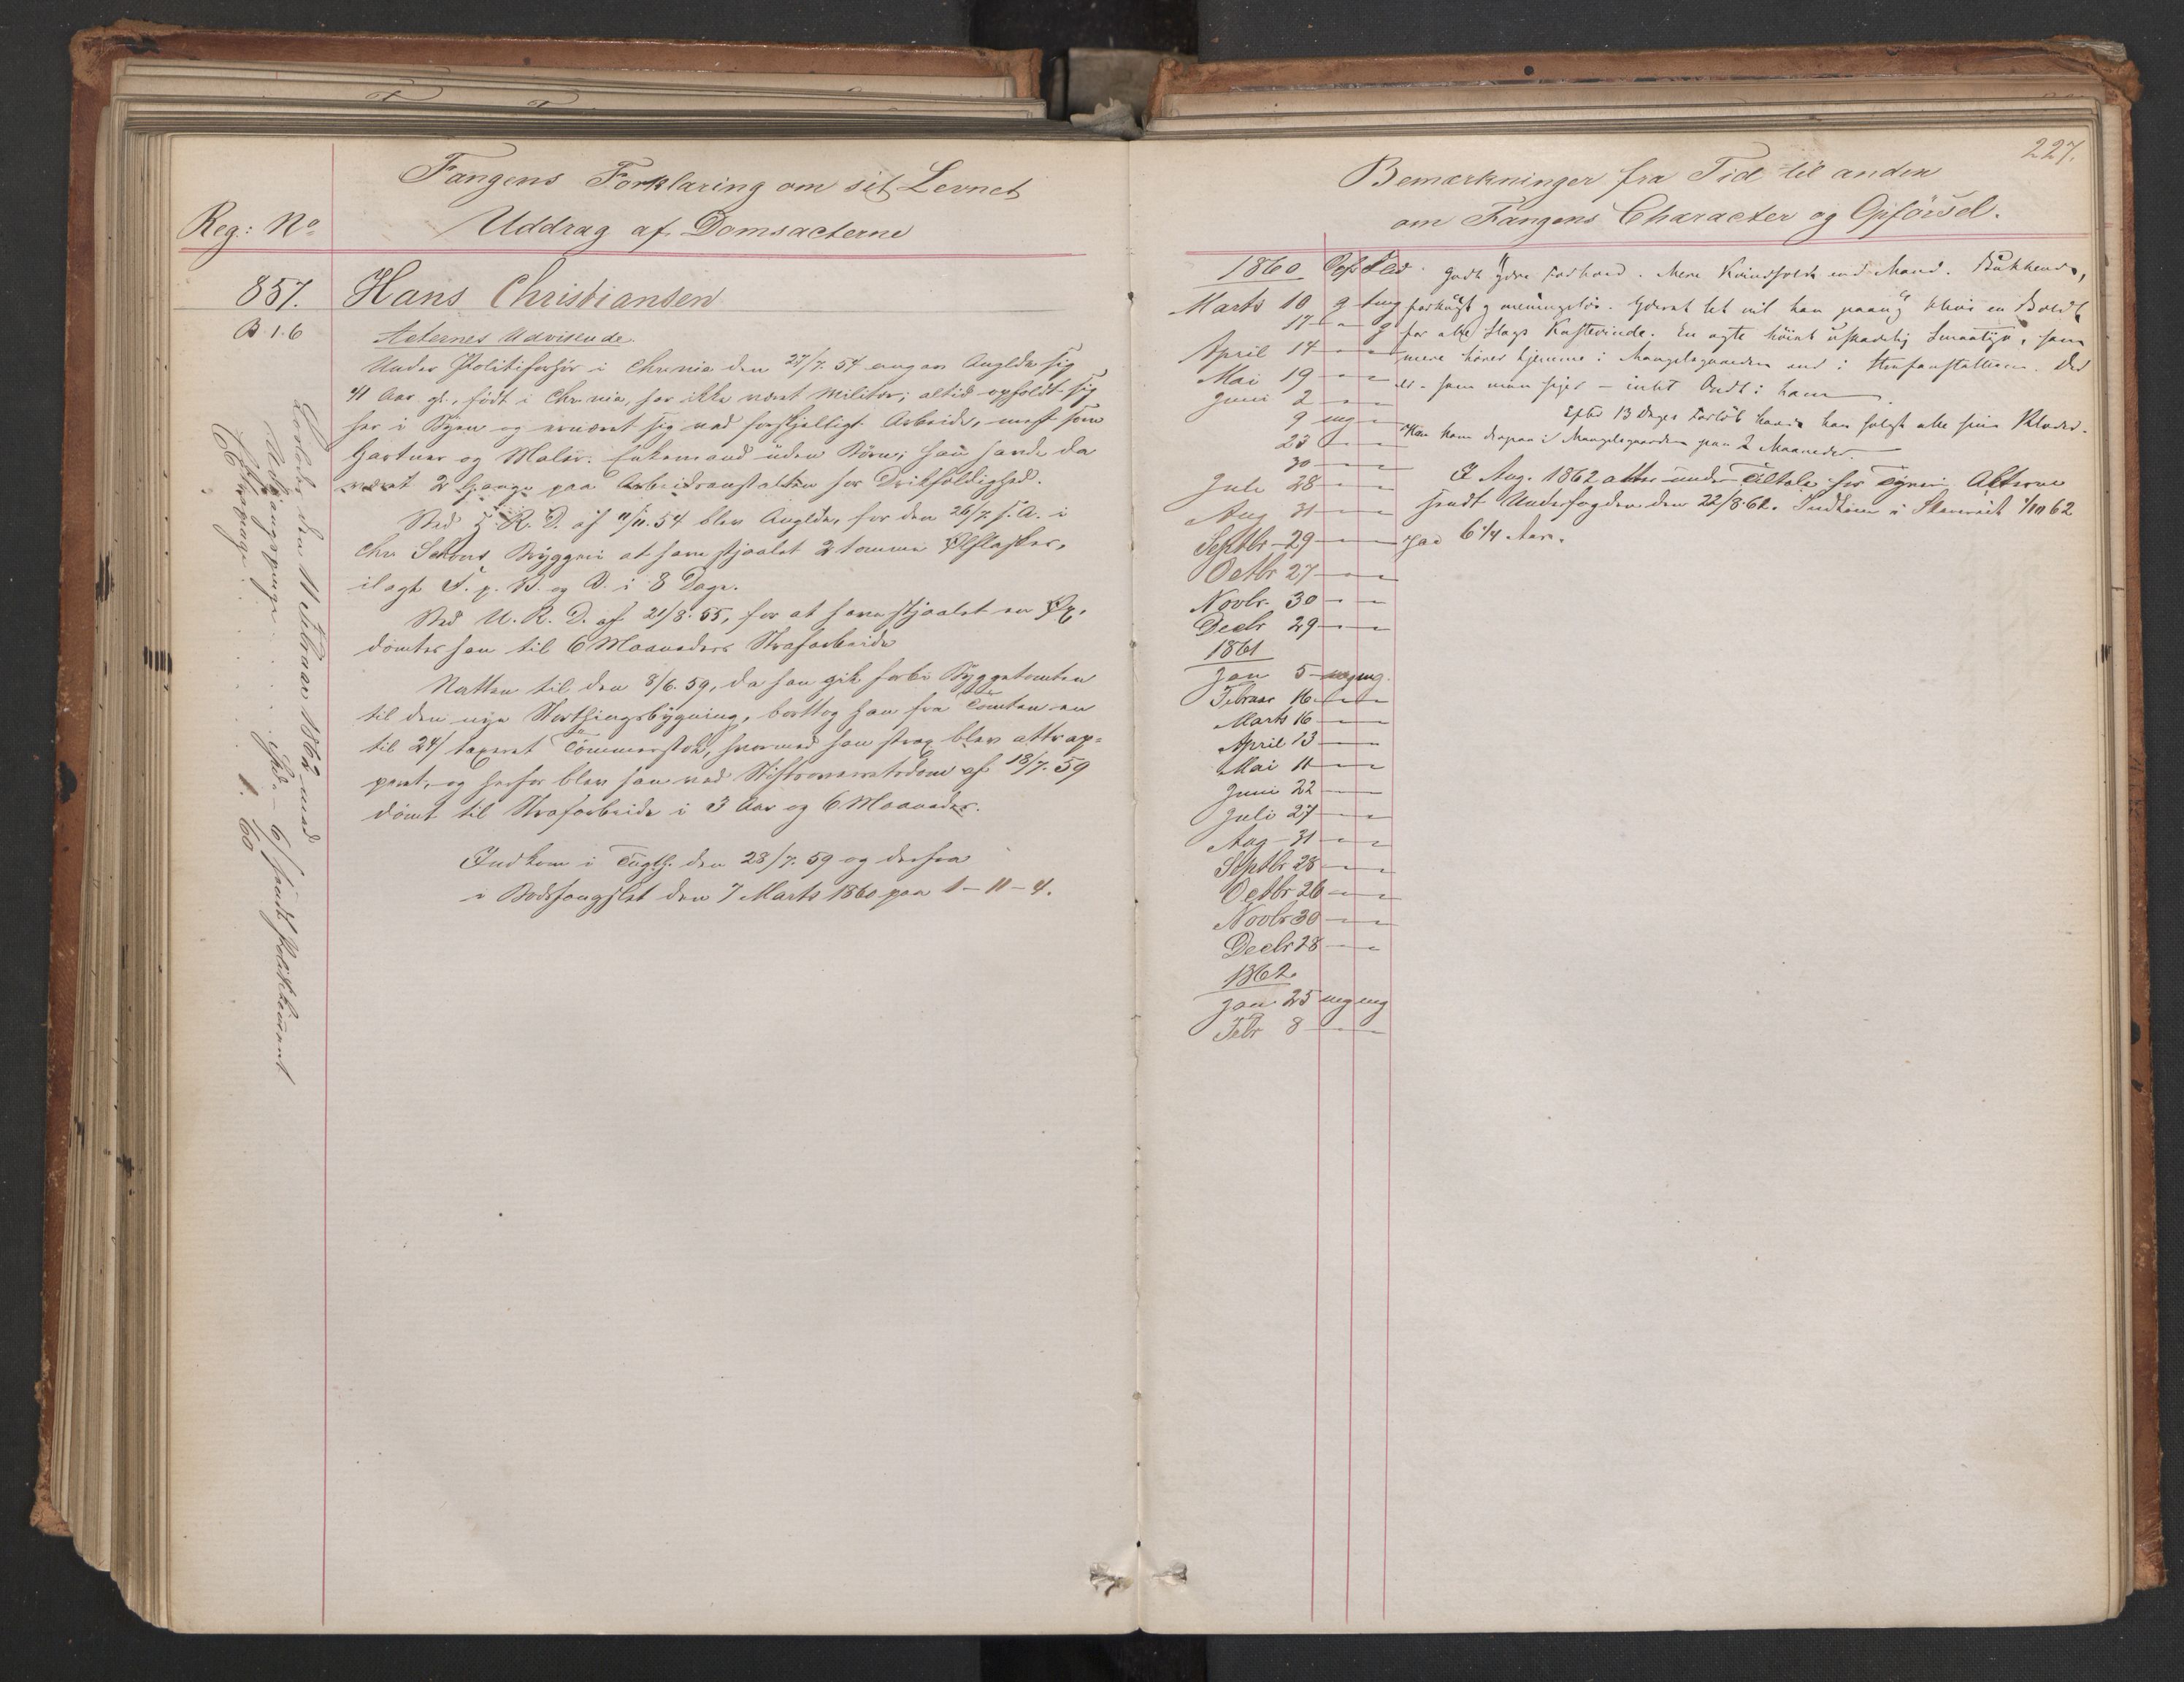 Fangens Forklaring om sit Levnet
Reg: No Uddrag af Domsacterne
857. Hans Christiansen
B. 1. 6 Acternes Udvisende.
Under Politiforhör i Chr.nia den 27/7. 54 angav Anglde sig
41 Aar gl., födt i Chr.nia, har ikke været Militær; altid opholdt sig
her i Byen og ernæret sig ved forskjelligt Arbeide, mest som
Gartner og Maler. Enkemand uden Börn; han havde da
været 2 Gange paa Arbeidsanstalten for Drikfældighed.
Ved R. D. af 11/11. 54 blev Anglde, for den 26/7 s. A. i
Chr. Schous Bryggeri at have stjaalet 2 tomme Ølflasker,
ilagt F. p. V. og B. i 8 Dage.
Ved U. R. D. af 21/8. 55, for at have stjaalet en Øx,
dömtes han til 6 Maaneders Strafarbeide
Natten til den 8/6. 59, da han gik forbi Byggetomten
til den nye Storthingsbygning, borttog han fra Tomten en
til 24/ taxeret Tömmerstok, hvormed han strax blev attrap-
peret, og herfor blev han ved Stiftsoverretsdom af 18/7. 59
dömt til Strafarbeide i 3 Aar og 6 Maaneder.
Indkom i Tugth. den 28/7. 59 og derfra
i Bodsfængslet den 7 Marts 1860 paa 1 – 11 – 4.
Löslades den 11 Februar 1862 med
Udgangspenge . . . Spd. – 6 / sendt Politikamret
Eftersparpenge . . . 1. 60
227.
Bemærkninger fra Tid til anden
om Fangens Character og Opförsel.
1860 Opf Flid Godt ydre Forhold. Mere Kvindfolk end Mand.
Marts 10 g tmg forknyt og meningslös. let vil han paany blive en Bold
17 – " g for alle Slags Kastevinde. En agte höist uskadelig Smaatyv, som
April 14 – " – mere hörer hjemme i Mangelsgaarden end i Strafanstalten. Der
Mai 19 – " – er – som man siger – intet Ondt i ham.
Juni 2 – " –
9 mg – Efter 13 Dages Forlöb havde han solgt alle sine Klæder.
23 – " – Han kom derpaa i Mangelsgaarden paa 2 Maaneder.
30 – " –
Juli 28 – " – I Aug. 1862 atter under Tiltale for Tyveri. Akterne
Aug 31 – " – sendt Underfogden den 22/8. 62. Indkom i Slaveriet 1/10 62
Septbr – 29 – " – paa 6 1/4 Aar.
Octbr 27 – " –
Novbr. 30 – " –
Decbr 29 – " –
1861
Jan 5 – mg mg.
Februar 16 – " –
Marts 16 – " –
April 13 – " –
Mai 11 – " –
Juni 22 – " –
Juli 27 – " –
Aug – 31 – " –
Septbr 28 – " –
Octbr 26 – " –
Novbr 30 – " –
Decbr 28 – " –
1862
Jan 25 mg mg
Febr 8 – " –